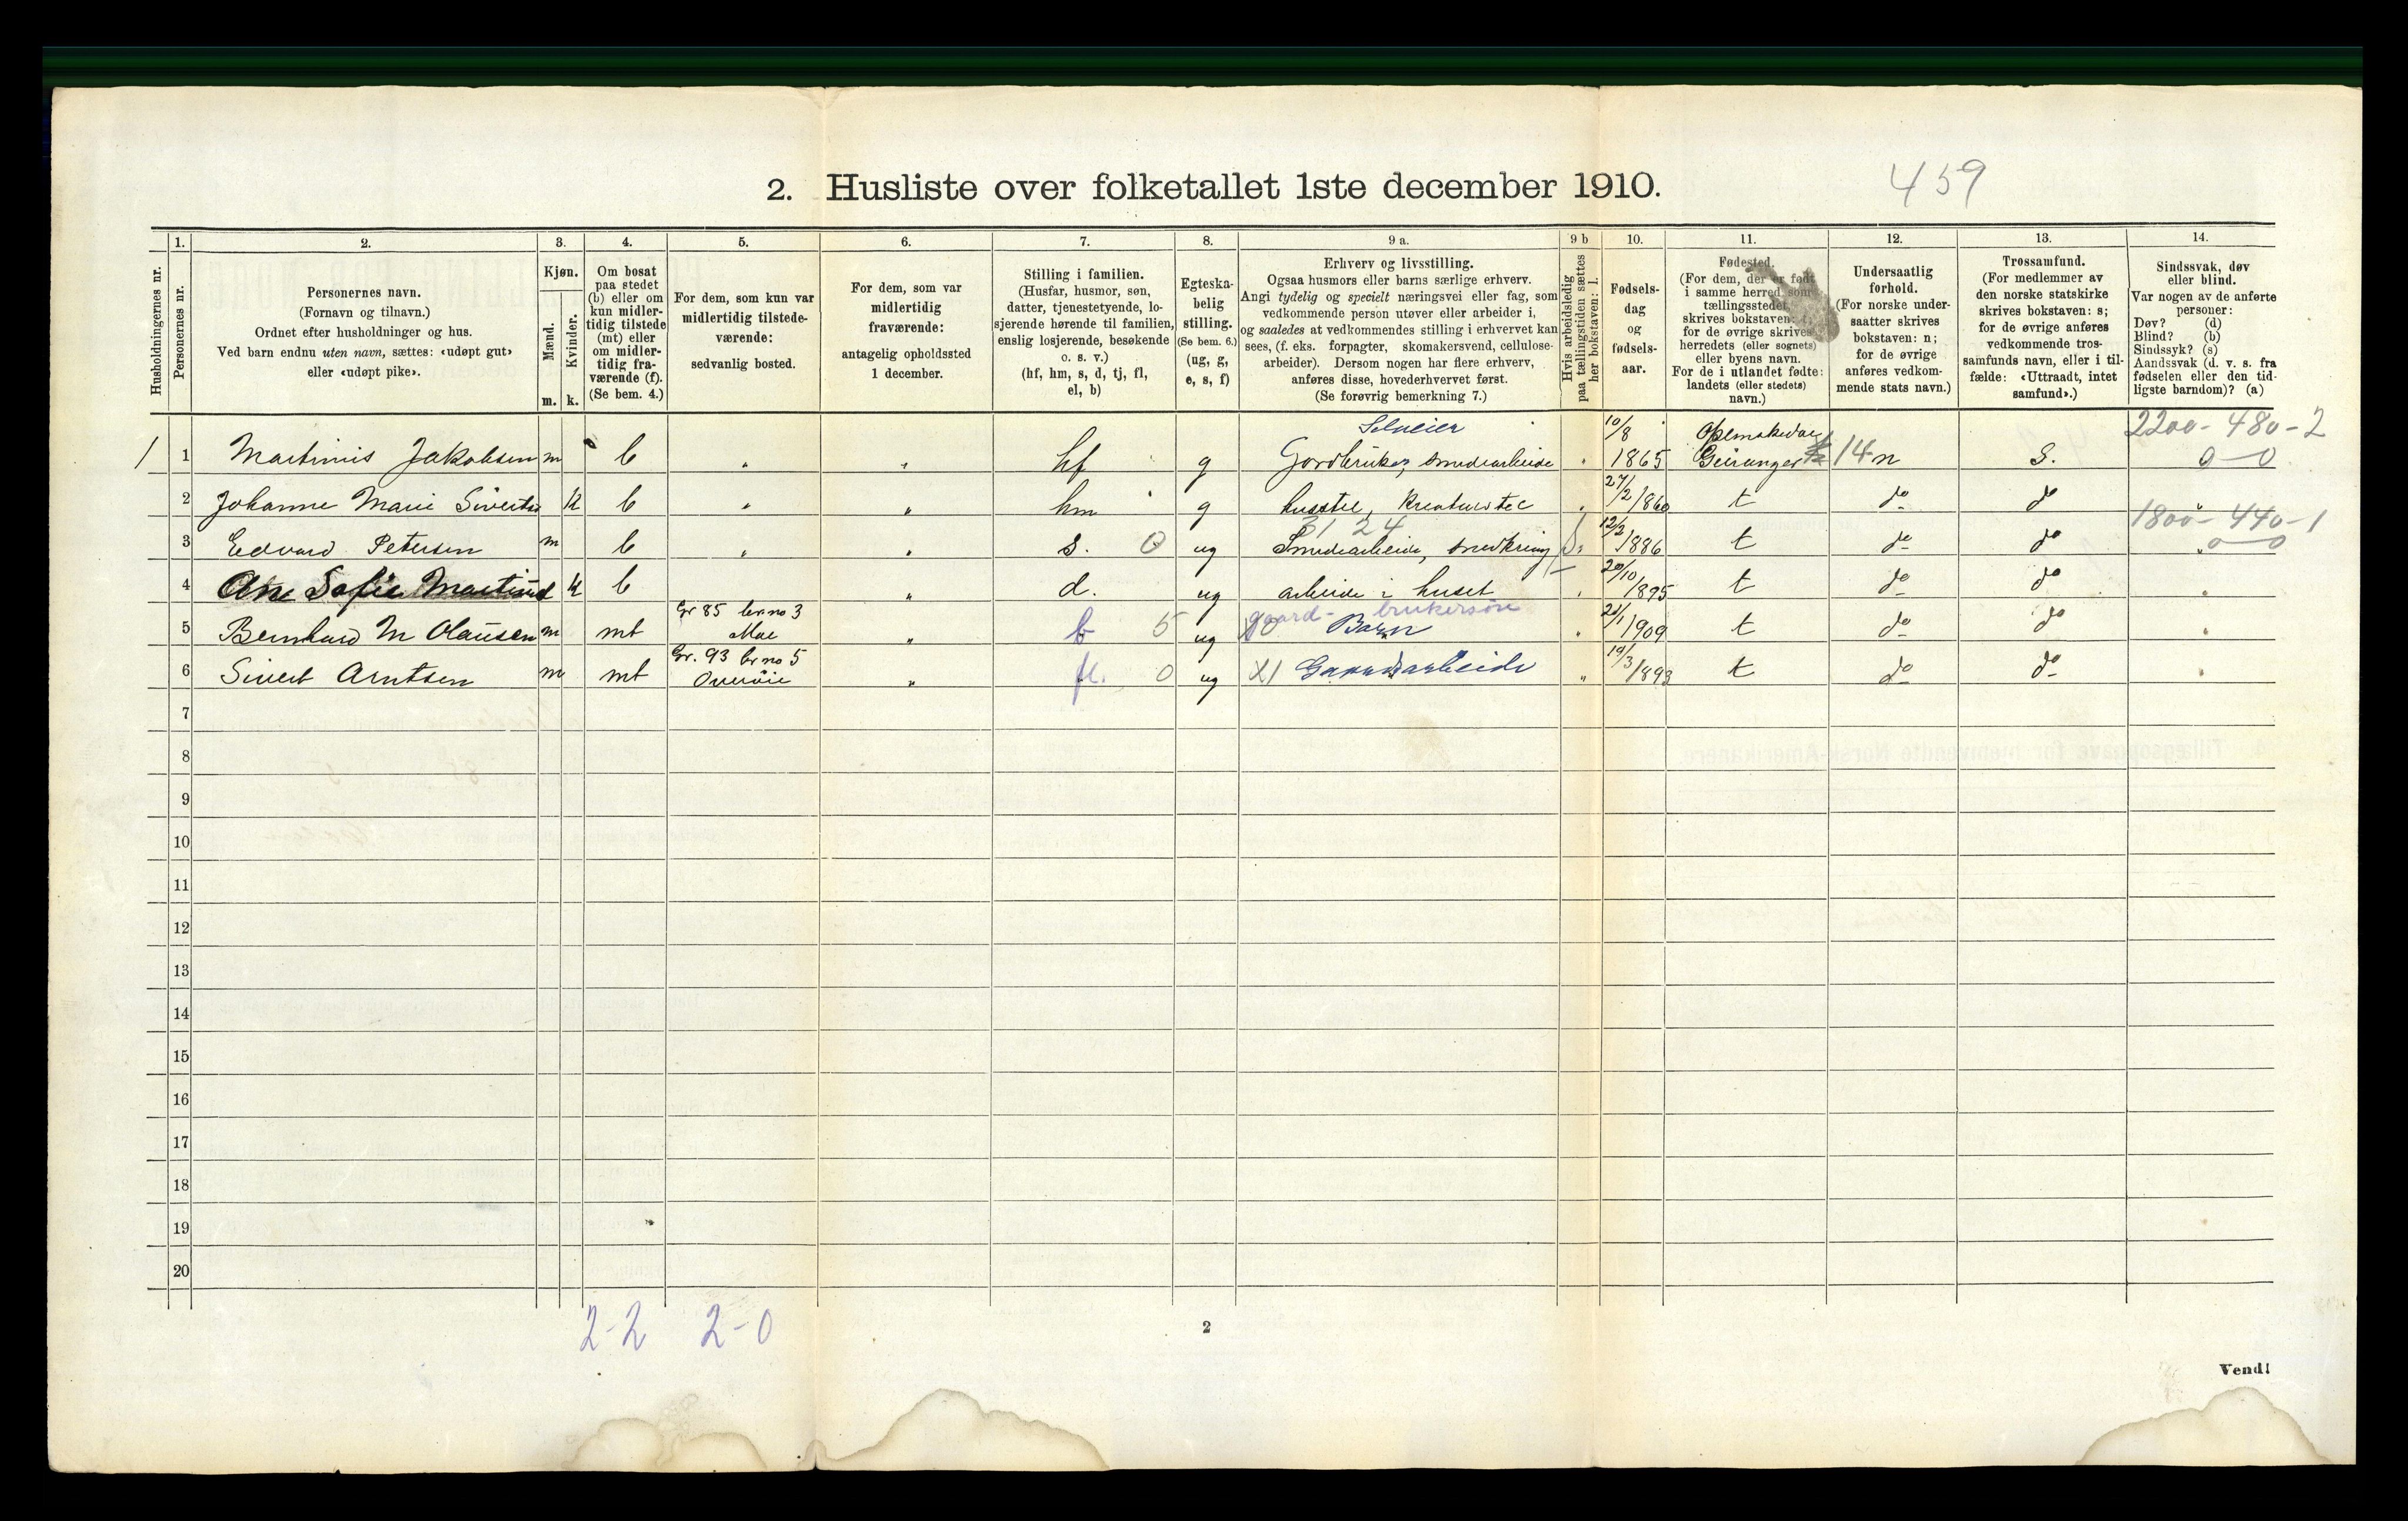 2. Husliste over folketallet 1ste december 1910.
459
Husholdningernes nr.
1.
Personernes nr.
2.
Personernes navn.
(Fornavn og tilnavn.)
Ordnet efter husholdninger og hus.
Ved barn endnu uten navn, sættes: «udøpt gut»
eller «udøpt pike».
3.
Kjøn.
Mænd.
Kvinder.
m. k.
4.
Om bosat
paa stedet
(b) eller om
kun midler-
tidig tilstede
(mt) eller
om midler-
tidig fra-
værende (f).
(Se bem. 4.)
5.
For dem, som kun var
midlertidig tilstede-
værende:
sedvanlig bosted.
6.
For dem, som var
midlertidig
fraværende:
antagelig opholdssted
1 december.
7.
Stilling i familien.
(Husfar, husmor, søn,
datter, tjenestetyende, lo-
sjerende hørende til familien,
enslig losjerende, besøkende
o. s. v.)
(hf, hm, s, d, tj, fl,
el, b)
8.
Egteska-
belig
stilling.
(Se bem. 6.)
(ug, g,
e, s, f)
9 a.
Erhverv og livsstilling.
Ogsaa husmors eller barns særlige erhverv.
Angi tydelig og specielt næringsvei eller fag, som
vedkommende person utøver eller arbeider i,
og saaledes at vedkommendes stilling i erhvervet kan
sees, (f. eks. forpagter, skomakersvend, cellulose-
arbeider). Dersom nogen har flere erhverv,
anføres disse, hovederhvervet først.
(Se forøvrig bemerkning 7.)
9 b
Hvis arbeidsledig
paa tællingstiden sættes
her bokstaven: l.
10.
Fødsels-
dag
og
fødsels-
aar.
11.
Fødested.
(For dem, der er født
i samme herred som
tællingsstedet,
skrives bokstaven: t;
for de øvrige skrives
herredets (eller sognets)
eller byens navn.
For de i utlandet fødte:
landets (eller stedets)
navn.)
12.
Undersaatlig
forhold.
(For norske under-
saatter skrives
bokstaven: n;
for de øvrige
anføres vedkom-
mende stats navn.)
13.
Trossamfund.
(For medlemmer av
den norske statskirke
skrives bokstaven: s;
for de øvrige anføres
vedkommende tros-
samfunds navn, eller i til-
fælde: «Uttraadt, intet
samfund».)
14.
Sindssvak, døv
eller blind.
Var nogen av de anførte
personer:
Døv? (d)
Blind? (b)
Sindssyk? (s)
Aandssvak (d. v. s. fra
fødselen eller den tid-
ligste barndom)? (a)
Selveier 10/8 2200 - 480 - 2
1 1 Martinus Jakobsen m b " " hf g Gordbruker, smedearbeide 1865 Geiranger 14 n S. 0-0
2 Johanne Marie Siverts k b " " hm g husstel, kreaturstel 27/2 1860 t do do "
31 24 1800 - 440 - 1
3 Edvard Petersen m b " " s. 0 ug Smedearbeide, 12/2 1886 t do do 0-0
4 Ane Sofie Martinsd k b " d. ug arbeide i huset 20/10 1895 t do do
Gr 85 br no 3 gaard-brukersøn
5 Bernhard M Olausen m mt Moe " b 5 ug Barn " 21/1 1909 t do do
Gr. 93 br no 5
6 Sivert Arntsen m mt Overøie " fl. 0 ug X1 Gaardsarbeide " 19/3 1893 t do do
7
8
9
10
11
12
13
14
15
16
17
18
19
20
2-2 2-0
2
Vend!